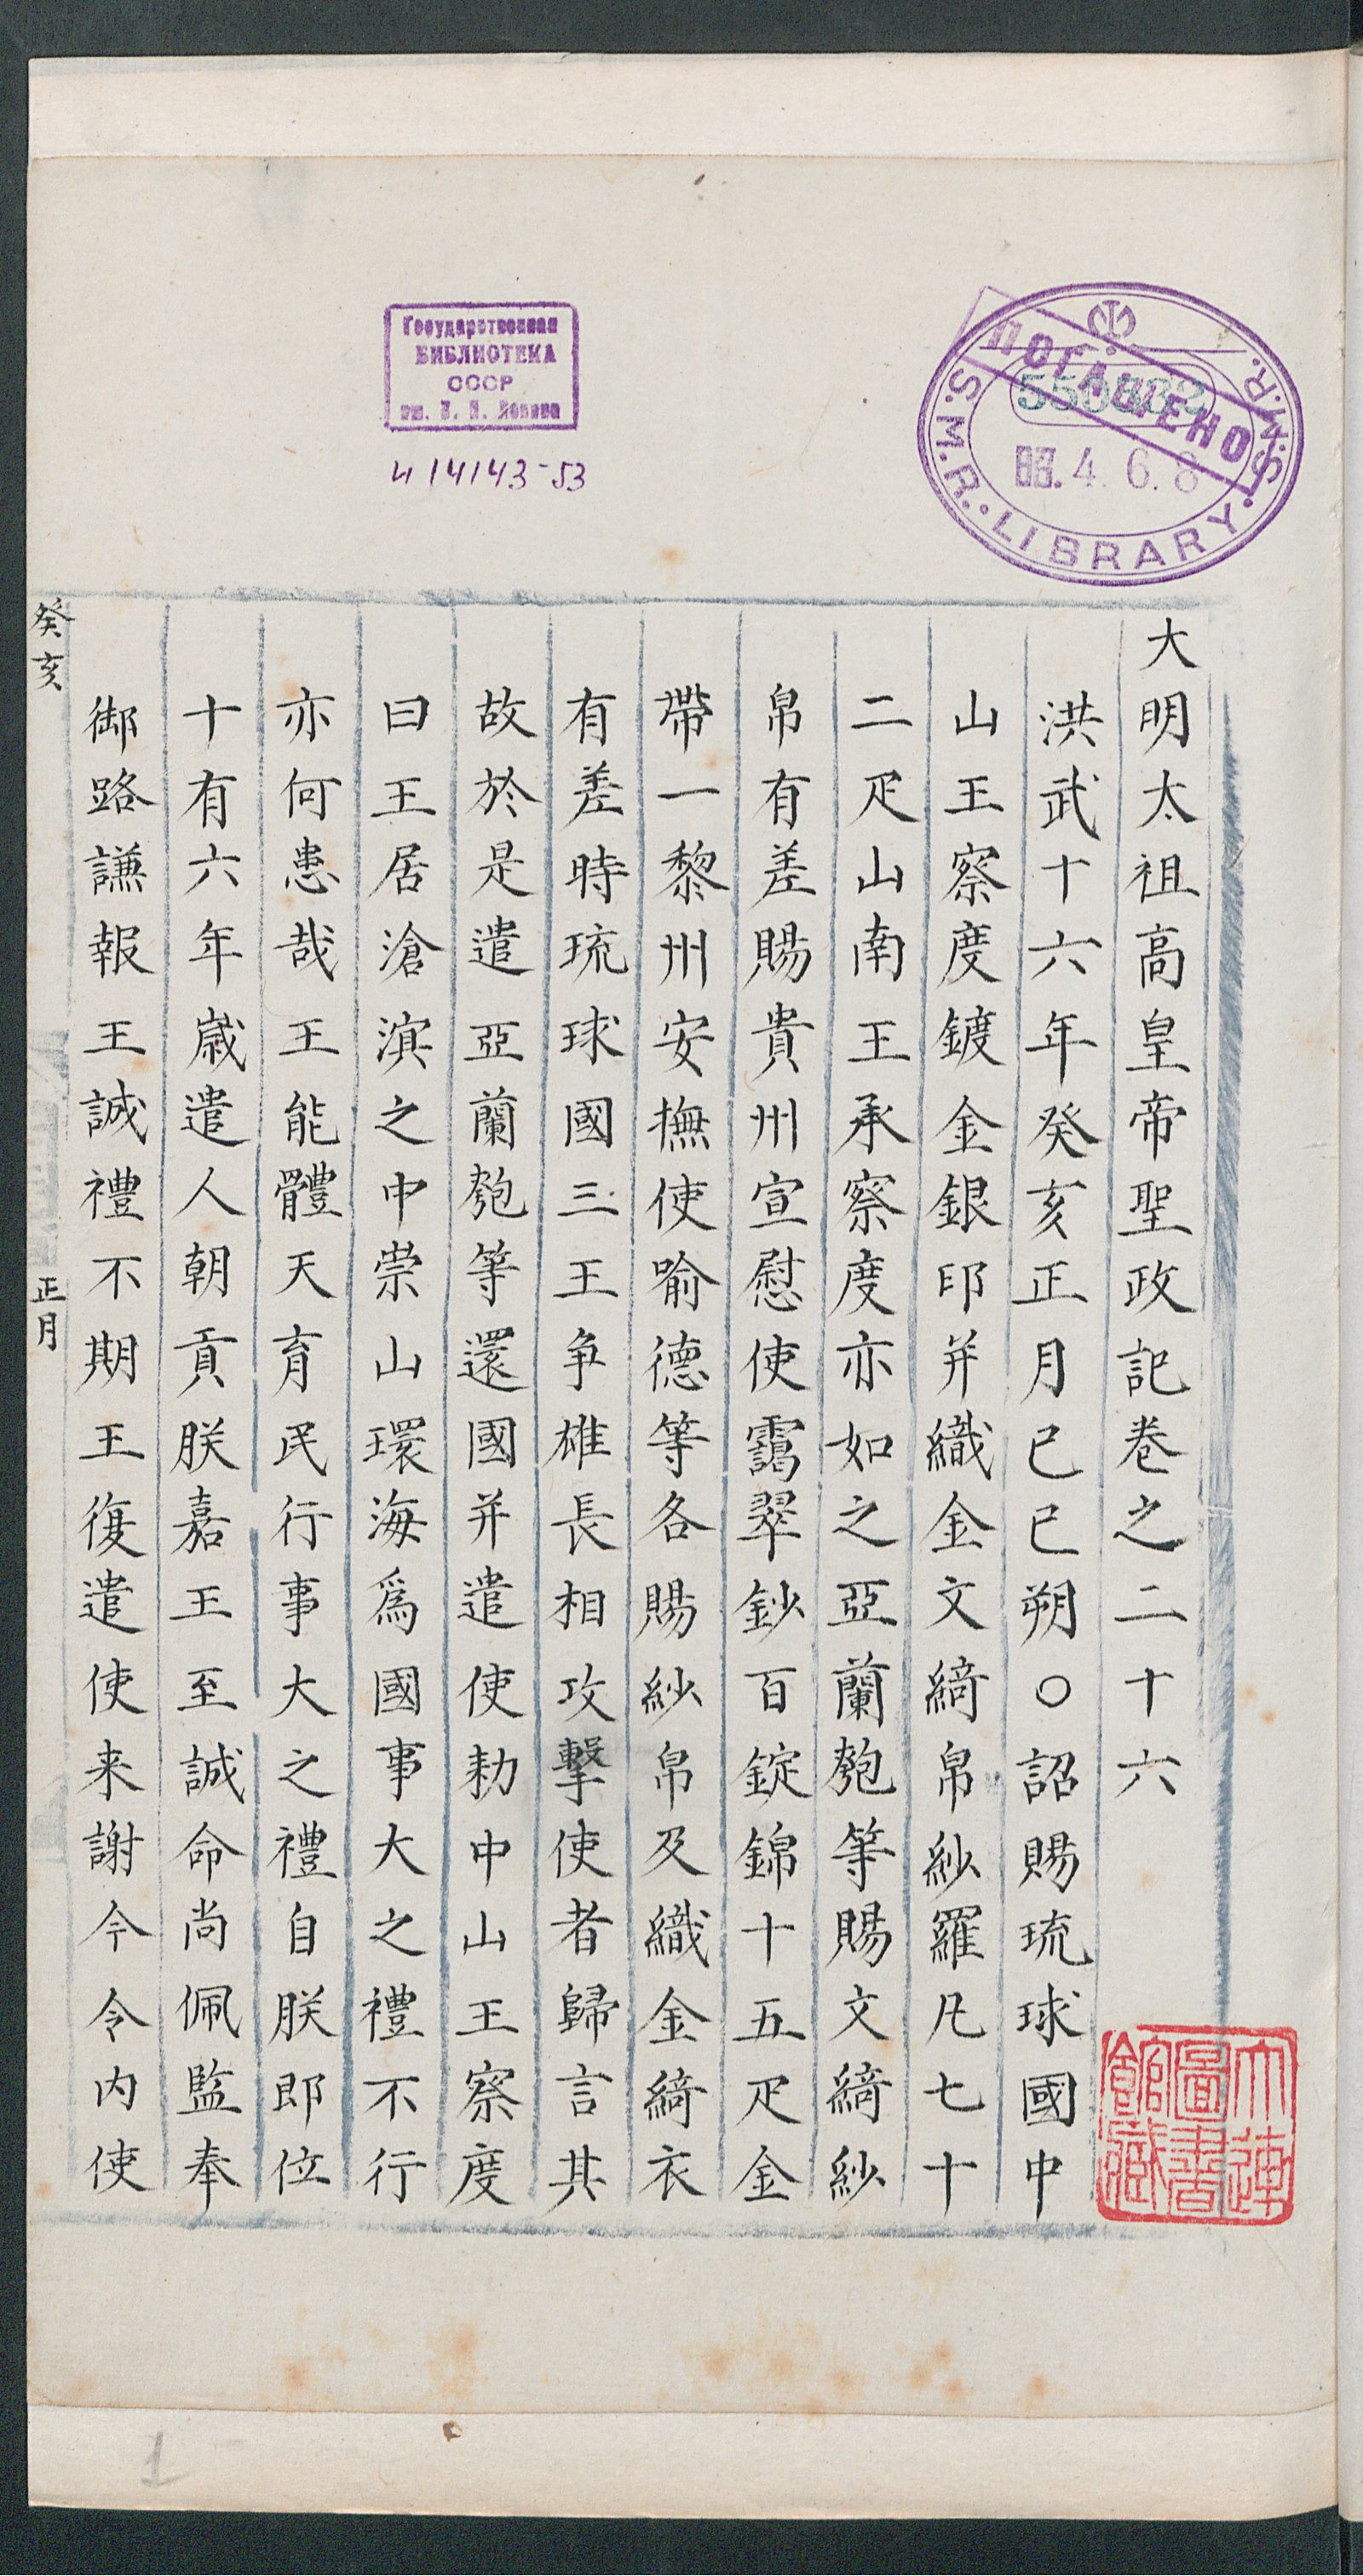 大明太祖高皇帝聖政記卷之二十六
洪武十六年癸亥正月已巳朔○詔賜琉球國中
山王察度鍍金銀印并織金文綺帛紗羅凡七十
二疋山南王承察度亦如之亞蘭匏等賜文綺紗
帛有差賜貴州宣慰使靄翠鈔百錠錦十五疋金
帶一黎州安撫使喻德等各賜紗帛及織金綺衣
有差時琉球國三王爭雄長相攻擊使者歸言其
故於是遣亞蘭匏等還國并遣使勑中山王察度
曰王居滄溟之中崇山環海爲國事大之禮不行
亦何患哉王能體天育民行事大之禮自朕即位
十有六年歲遣人朝貢朕嘉王至誠命尚佩監奉
御路謙報王誠禮不期王復遣使来謝今令内使
癸亥
正月
Государственная
БИБЛИОТЕКА
СССР
им. В. И. Ленина
И 14143-53
S.M.R. LIBRARY. S.M.R.
ПОГАШЕНО
昭. 4. 6. 8
大連
圖書
館藏
1